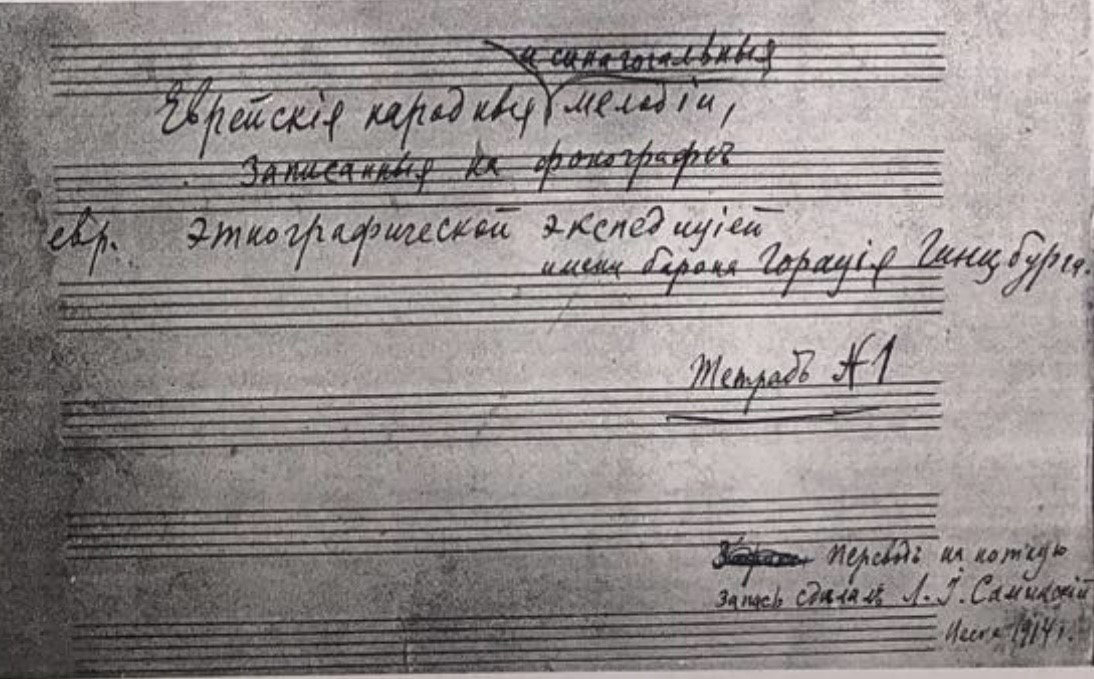 и синагогальныя
Еврейскія народныя мелодіи,
Записанныя на фонографѣ
евр. этнографической экспедиціей
имени барона Горація Гинцбурга.
Тетрадь №1
Переводъ на нотную
запись сдѣлалъ Л. І. Саминскій
1914 г.